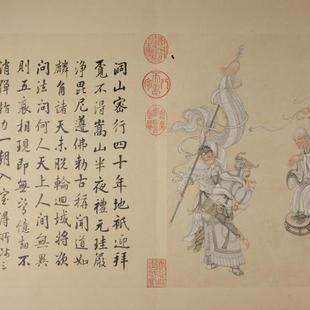 洞山密行四十年地祇迎拜
覓不得嵩山半夜禮元珪嚴
淨毘尼遵佛勅古稱聞道如
麟角諸天未脫輪迴域將欲
問法問何人天上人間無異
則五衰相現即無常億劫不
消彈指力一朝入室得所